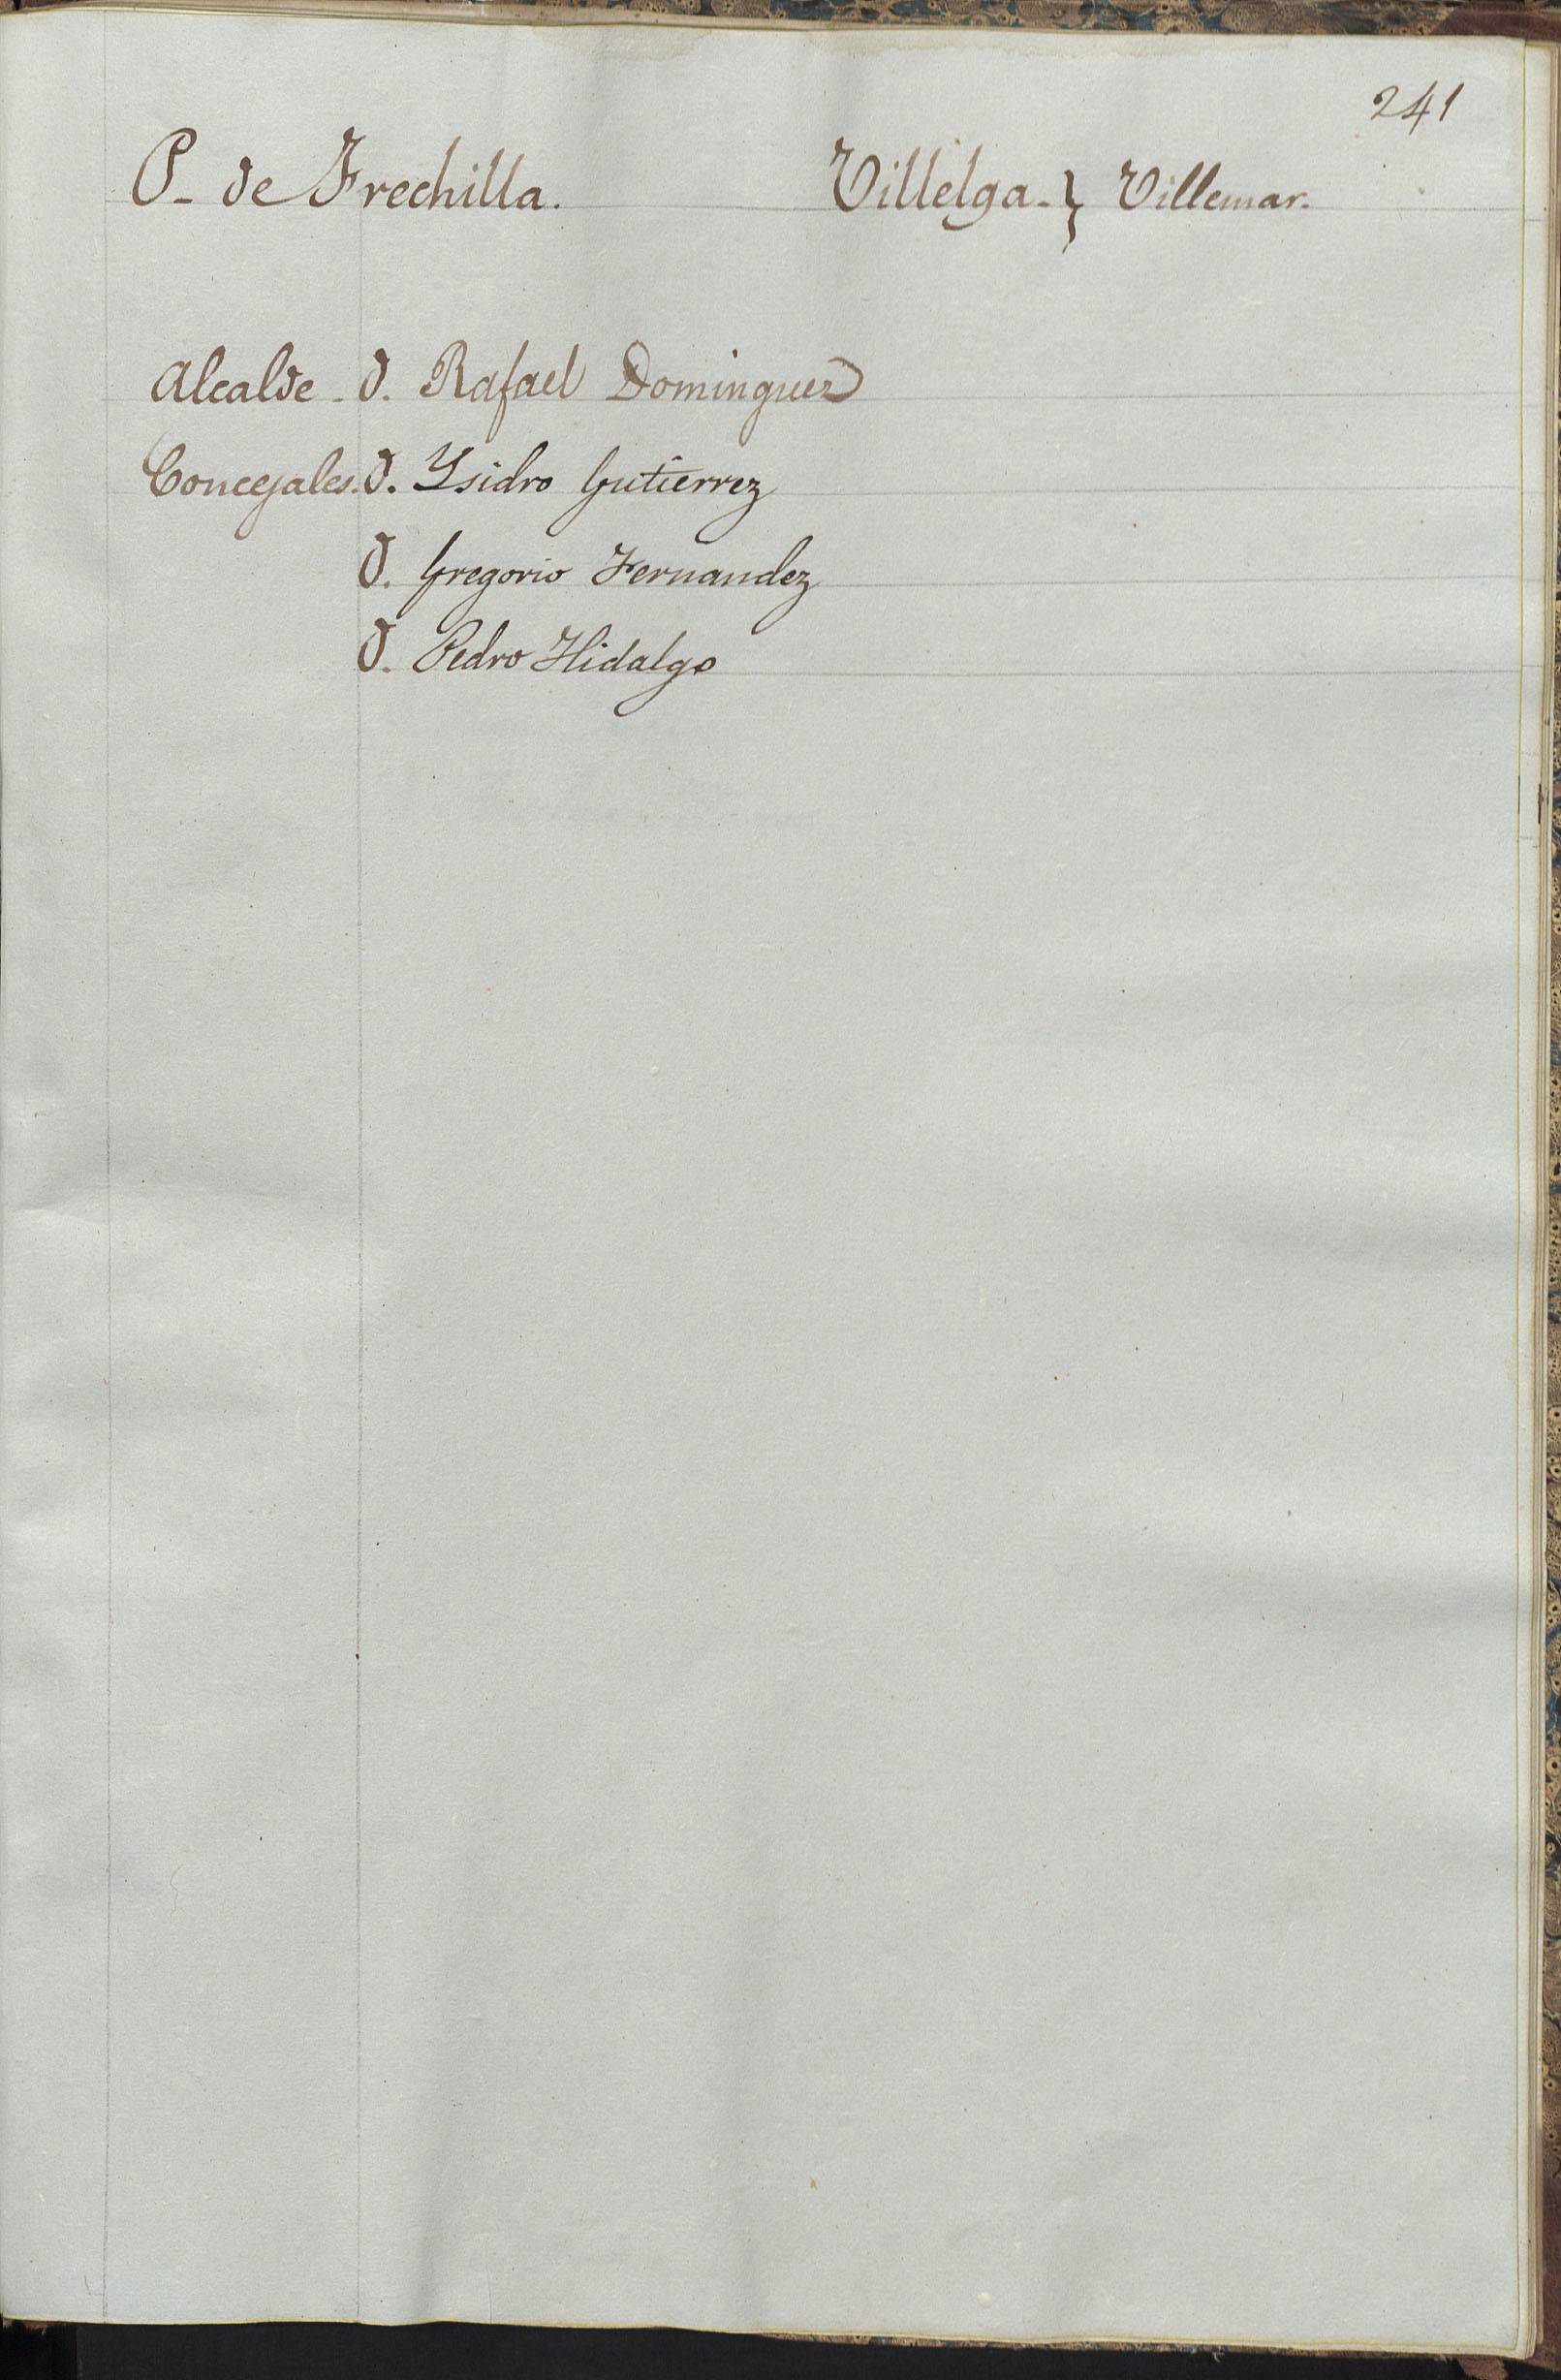 241
P. de Frechilla. Villelga. } Villemar.
Alcalde - D. Rafael Dominguez
Concejales. D. Ysidro Gutierrez
D. Gregorio Fernandez
D. Pedro Hidalgo